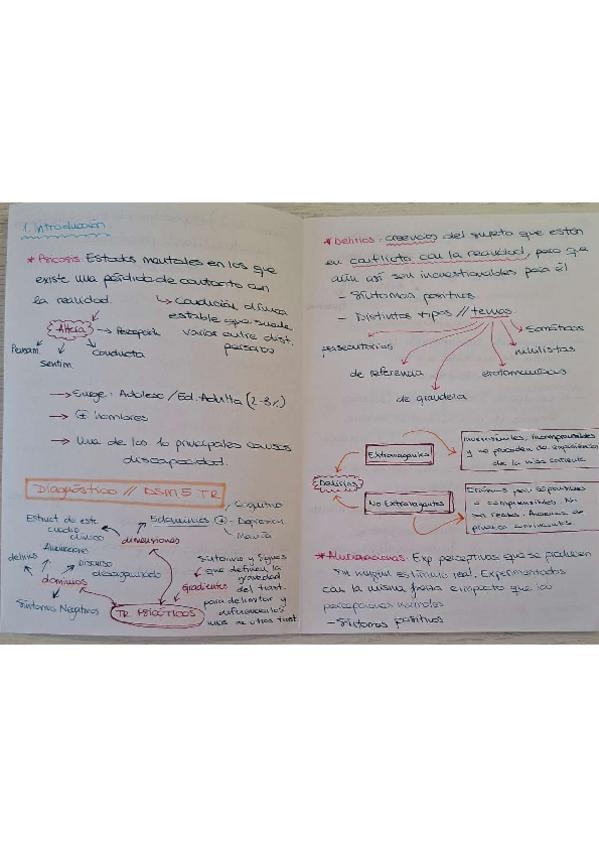 1. Introducción
* Psicosis: Estados mentales en los que
existe una pérdida de contacto con
la realidad.
↳ Condición clínica
estable que puede
variar entre dist.
personas
Altera
→ Percepción
Pensam.
Sentim.
Conducta
→ Surge: Adolesc / Ed. Adulta (2-3%)
→ ⊕ Hombres
→ Una de las 10 principales causas
discapacidad.
Diagnóstico // DSM 5 TR
Estruct de este
cuadro
clínico
5 dominios ⊕
- Cognitivo
- Depresión
- Manía
dimensiones
delirios
Alucinaciones
Discurso
desorganizado
dominios
Síntomas Negativos
TR PSICÓTICOS
Gradientes
Síntomas y signos
que definen la
gravedad
del trast.
para delimitar y
diferenciarlos
unos de otros trast
* Delirios: creencias del sujeto que están
en conflicto con la realidad, pero que
aún así son incuestionables para él
- Síntomas positivos
- Distintos tipos // temas
persecutorios
de referencia
de grandeza
erotomaníacas
nihilistas
Somáticas
Delirios
Extravagantes
Inverosímiles, incomprensibles
y no proceden de experiencias
de la vida corriente
No Extravagantes
* Alucinaciones: Exp perceptivas que se producen
sin ningún estímulo real. Experimentadas
con la misma fuerza e impacto que las
percepciones normales
- Síntomas positivos